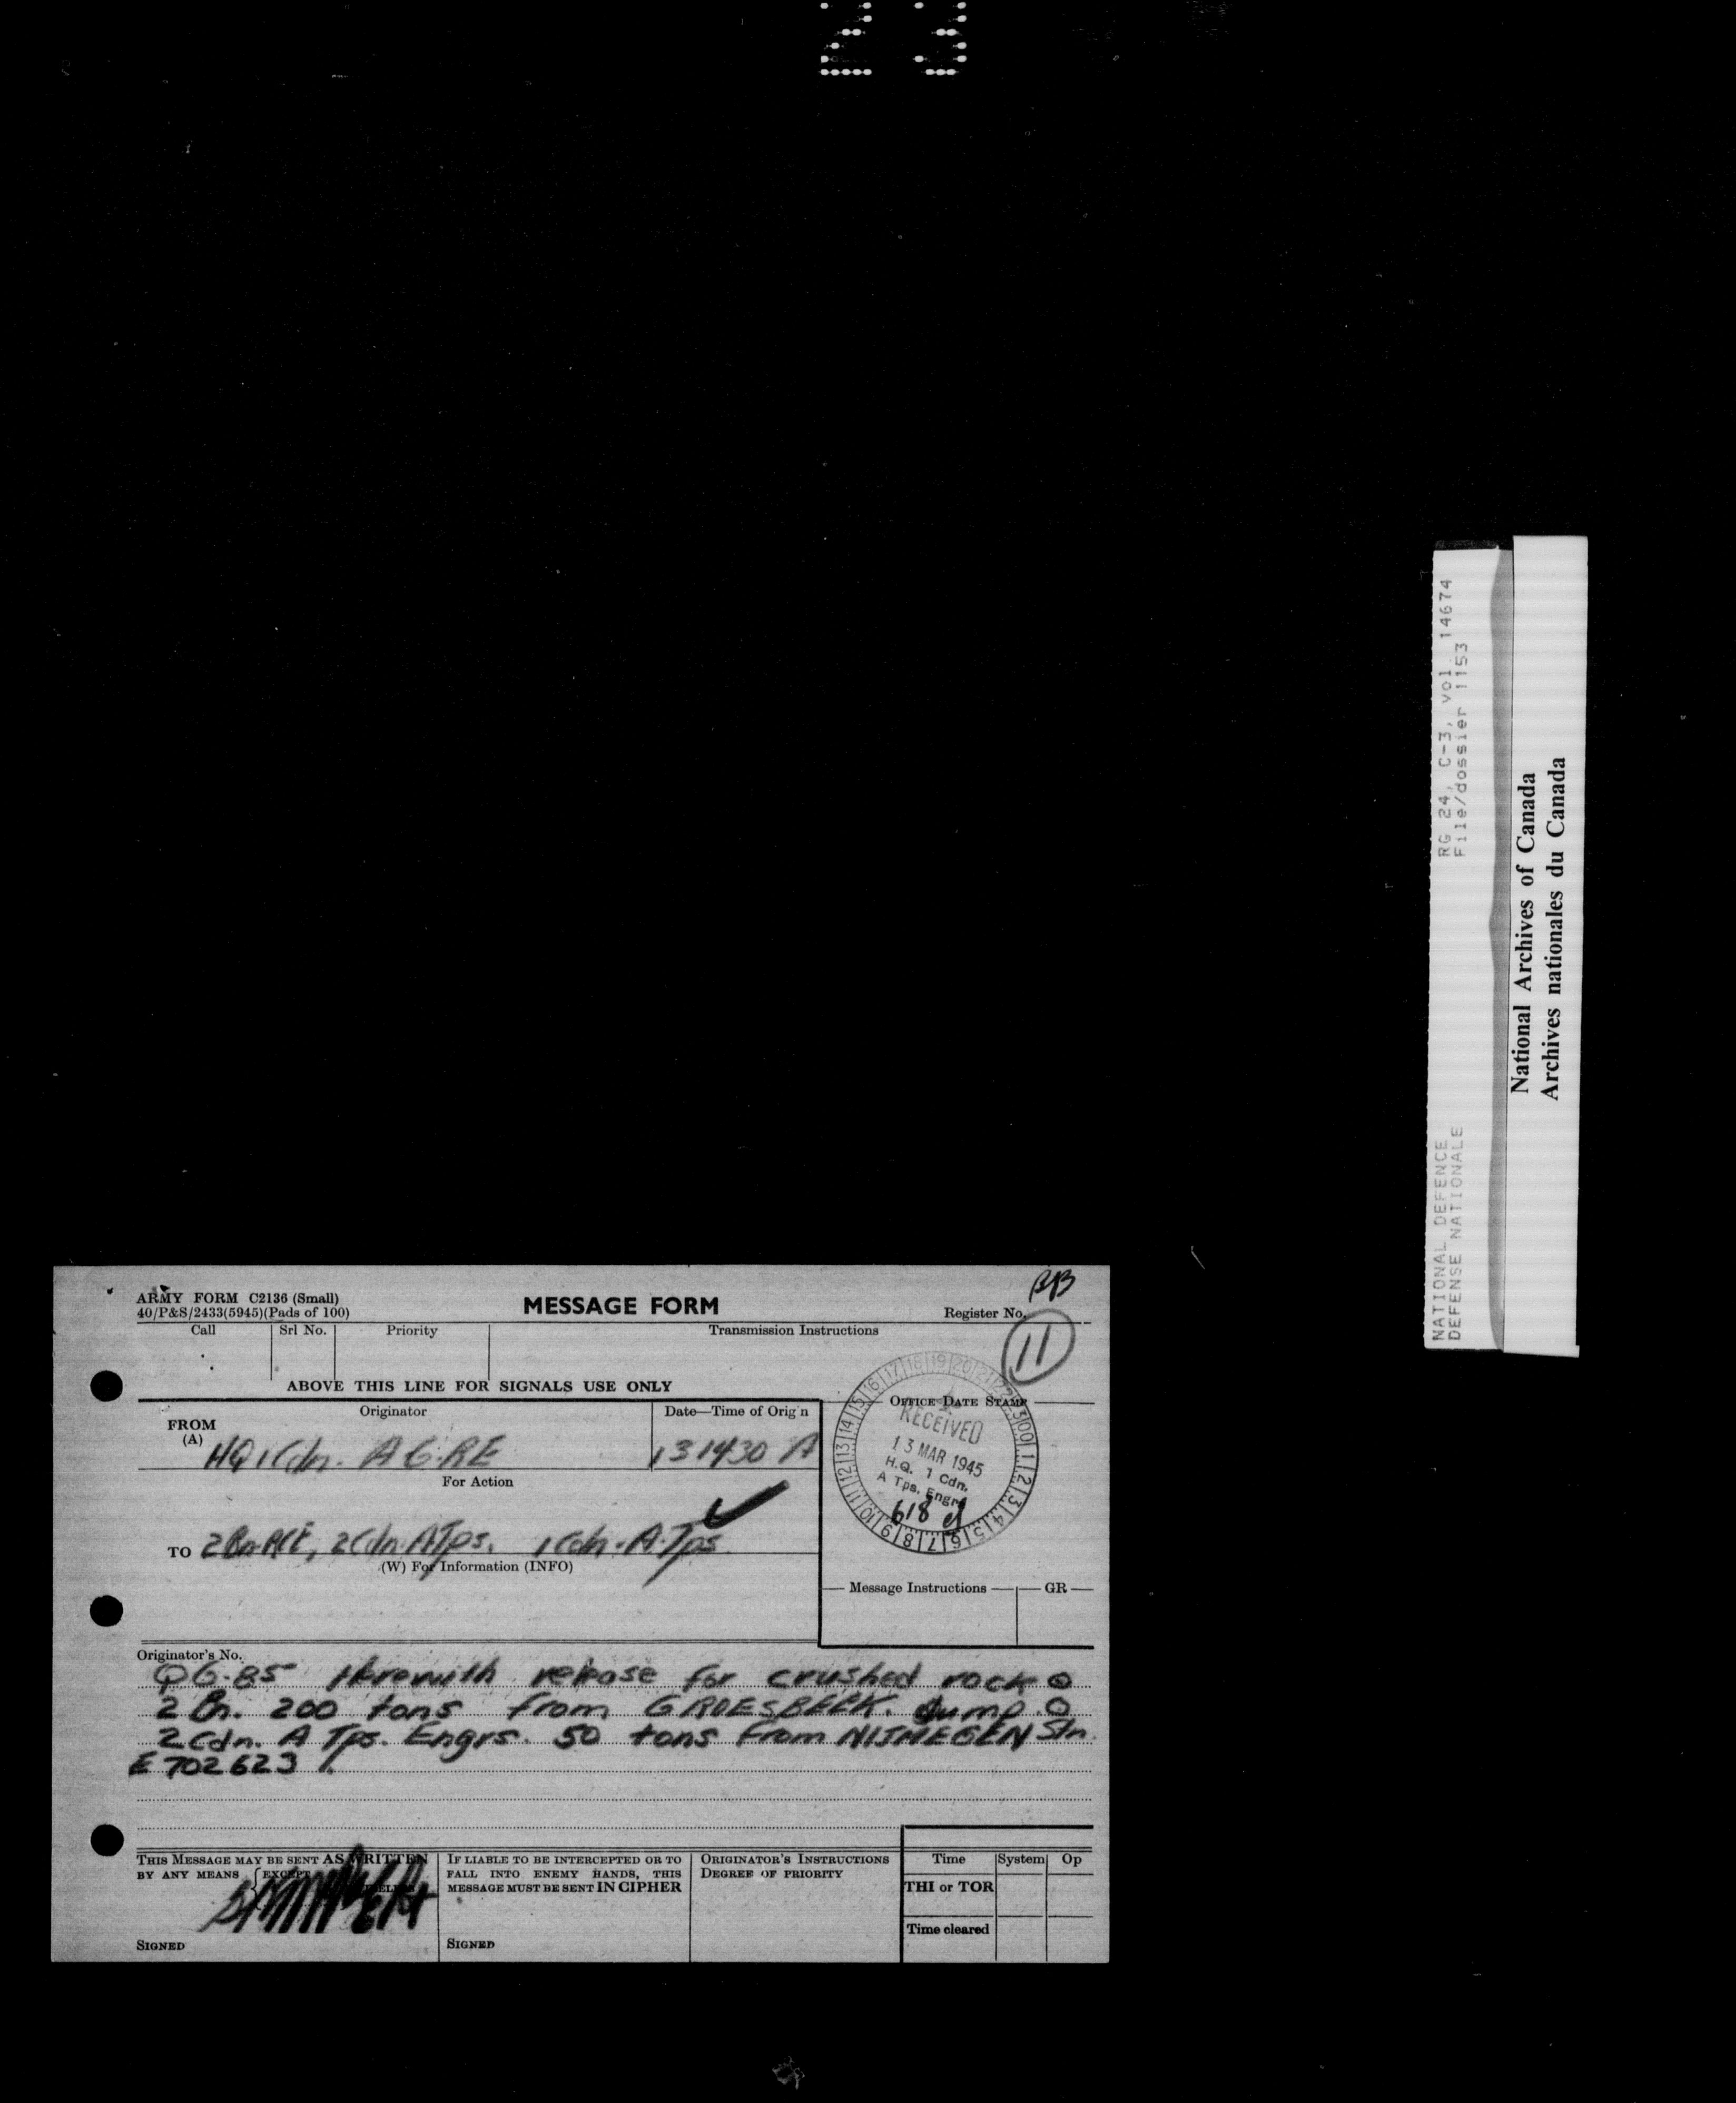 23
ARMY FORM C2136 (Small)
40/P&S/2433(5945)(Pads of 100)
MESSAGE FORM
BB
Register No.
11
Call Srl No. Priority Transmission Instructions
ABOVE THIS LINE FOR SIGNALS USE ONLY
FROM
(A)
Originator
HQ 1 Cdn. A G.RE
Date—Time of Orig'n
131430 A
OFFICE DATE STAMP
RECEIVED
13 MAR 1945
H.Q. 1 Cdn.
A Tps. Engrs
618
For Action
TO 2 Bn. RCE, 2 Cdn. A Tps. 1 Cdn. A. Tps
(W) For Information (INFO)
Message Instructions GR
Originator's No.
QG.85 Herewith release for crushed rock O
2 Bn. 200 tons from GROESBEEK. dump. O
2 Cdn. A Tps. Engrs. 50 tons from NIJMEGEN Stn.
E 702623
THIS MESSAGE MAY BE SENT AS WRITTEN
BY ANY MEANS EXCEPT
SIGNED
IF LIABLE TO BE INTERCEPTED OR TO
FALL INTO ENEMY HANDS, THIS
MESSAGE MUST BE SENT IN CIPHER
SIGNED
ORIGINATOR'S INSTRUCTIONS
DEGREE OF PRIORITY
Time System Op
THI or TOR
Time cleared
NATIONAL DEFENCE RG 24, C-3, vol. 14674
DEFENSE NATIONALE File/dossier 1153
National Archives of Canada
Archives nationales du Canada